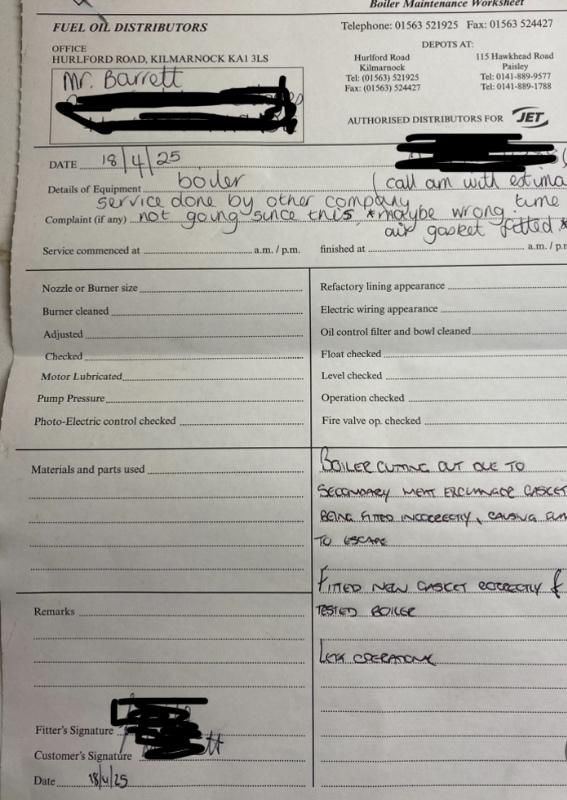 Boiler Maintenance Worksheet
FUEL OIL DISTRIBUTORS
Telephone: 01563 521925 Fax: 01563 524427
OFFICE
HURLFORD ROAD, KILMARNOCK KA1 3LS
DEPOTS AT:
Hurlford Road
Kilmarnock
Tel: (01563) 521925
Fax: (01563) 524427
115 Hawkhead Road
Paisley
Tel: 0141-889-9577
Tel: 0141-889-1788
Mr. Barrett
AUTHORISED DISTRIBUTORS FOR JET
DATE 18/4/25
Details of Equipment boiler (call am with estima
service done by other company time
Complaint (if any) not going since this *maybe wrong
air gasket fitted *
Service commenced at a.m. / p.m. finished at a.m. / p.
Nozzle or Burner size
Burner cleaned
Adjusted
Checked
Motor Lubricated
Pump Pressure
Photo-Electric control checked
Refactory lining appearance
Electric wiring appearance
Oil control filter and bowl cleaned
Float checked
Level checked
Operation checked
Fire valve op. checked
Materials and parts used
BOILER CUTTING OUT DUE TO
SECONDARY HEAT EXCHANGE GASKET
BEING FITTED INCORRECTLY, CAUSING FUM
TO ESCAPE
FITTED NEW GASKET CORRECTLY &
TESTED BOILER
LEFT OPERATIONAL
Remarks
Fitter's Signature
Customer's Signature
Date 18/4/25